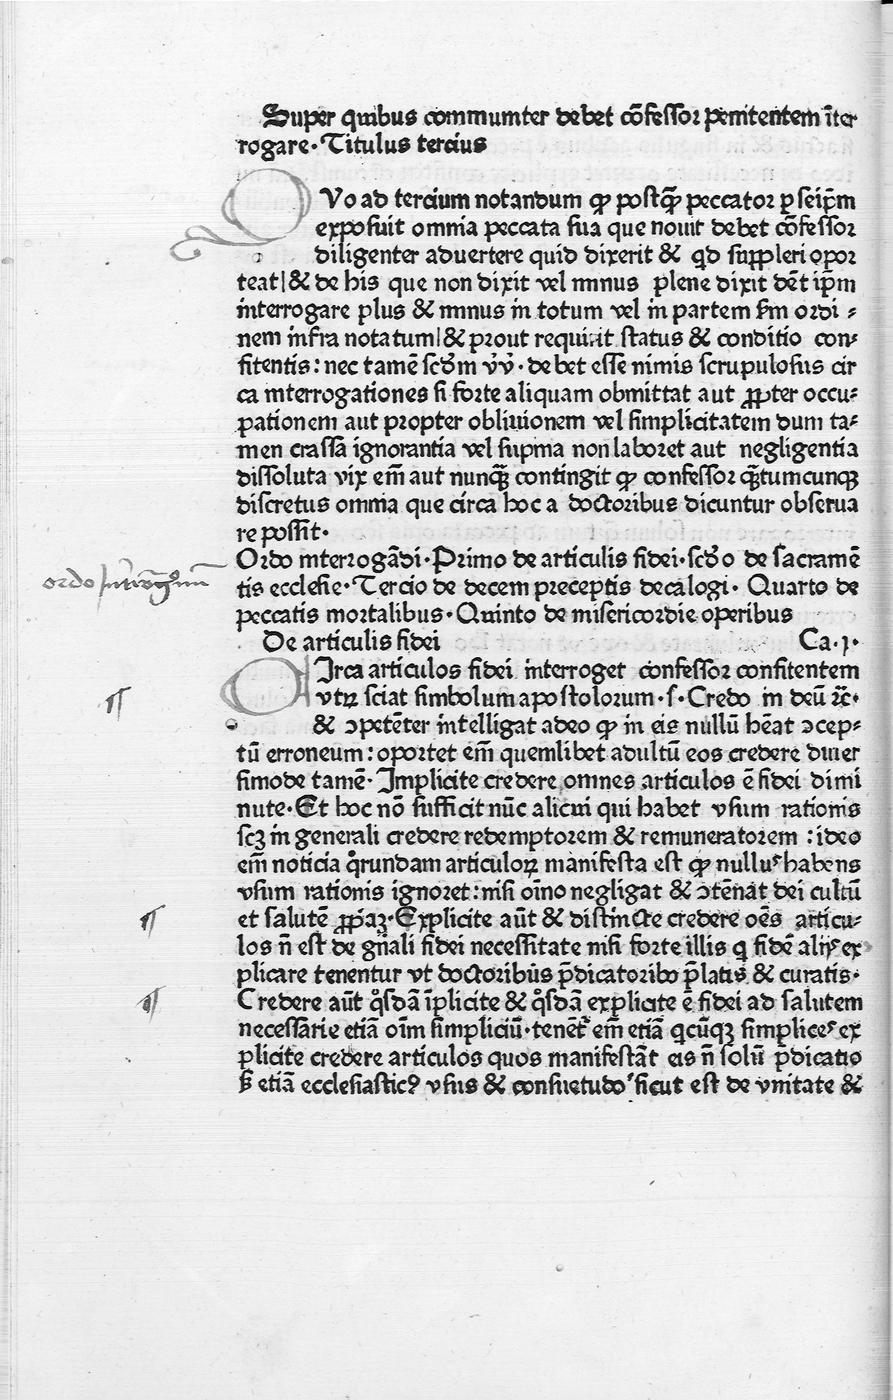 Super quibus communiter debet cōfessor penitentem īter
rogare·Titulus tercius
QVo ad tercium notandum ꝙ postꝙ̄ peccator ꝑ seip̄m
exposuit omnia peccata sua que nouit debet cōfessor
diligenter aduertere quid dixerit & qd suppleri opor
teat|& de his que non dixit vel minus plene dixit dēt ip̄m
interrogare plus & minus in totum vel in partem sm̄ ordi⸗
nem infra notatum|& prout requirit status & conditio con⸗
fitentis: nec tamē scd̄m debet esse nimis scrupulosus cir
ca interrogationes si forte aliquam obmittat aut ꝓpter occu⸗
pationem aut propter obliuionem vel simplicitatem dum ta⸗
men crassa ignorantia vel supina non laboret aut negligentia
dissoluta vix em̄ aut nunꝗ̄ contingit ꝙ confessor ꝗ̄tumcunqꝫ
discretus omnia que circa hoc a doctoribus dicuntur obserua
re possit·
Ordo interrogādi·Primo de articulis fidei·scd̄o de sacramē
ordo
tis ecclesie·Tercio de decem preceptis decalogi· Quarto de
peccatis mortalibus·Quinto de misericordie operibus
De articulis fidei Ca·j·
CIrca articulos fidei interroget confessor confitentem
¶ vtꝝ sciat simbolum apostolorum·s·Credo in deū ⁊c̄·
& ꝯpetēter intelligat adeo ꝙ in eis nullū hēat ꝯcep⸗
tū erroneum: oportet em̄ quemlibet adultū eos credere diuer
simode tamē·Implicite credere omnes articulos ē fidei dimi
nute·Et hoc nō sufficit nūc alicui qui habet vsum rationis
scꝫ in generali credere redemptorem & remuneratorem :ideo
em̄ noticia q̊rundam articuloꝝ manifesta est ꝙ nullus habens
vsum rationis ignoret: nisi oīno negligat & ꝯtēnat dei cultū
¶ et salutē ꝓp̄aꝫ·Explicite aūt & distincte credere oēs articu⸗
los n̄ est de gn̄ali fidei necessitate nisi forte illis q fidē alijs ex
plicare tenentur vt doctoribus p̄dicatoribꝰ p̄latis & curatis·
¶ Credere aūt q̊sdā īplicite & q̊sdā explicite ē fidei ad salutem
necessarie etiā oīm simpliciū·tenēt᷑ em̄ etiā qcūqꝫ simplices ex
plicite credere articulos quos manifestāt eis n̄ solū p̄dicatio
s̄ etiā ecclesiasticꝰ vsus & consuetudo sicut est de vnitate &